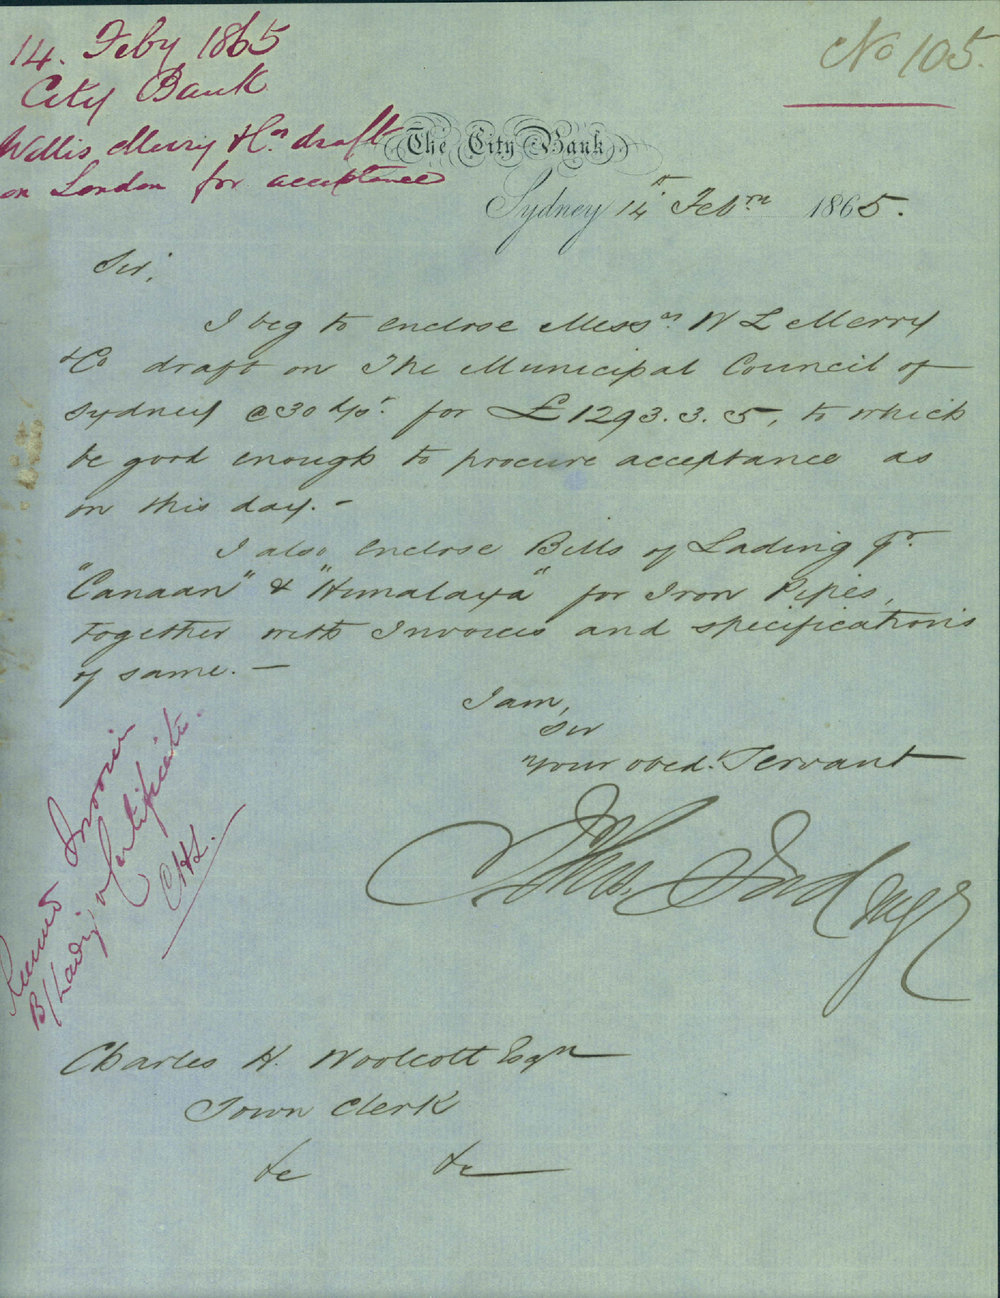 14. Feby 1865
City Bank
Willis Merry & Co draft
on London for acceptance
No 105.
The City Bank
Sydney 14th Febry 1865.
Sir,
I beg to enclose Messrs W L Merry
& Co draft on The Municipal Council of
Sydney @ 30 d/s. for £1293.3.5, to which
be good enough to procure acceptance as
on this day. -
I also enclose Bills of Lading pr.
"Canaan" & "Himalaya" for Iron Pipes,
together with Invoices and specifications
of same. -
I am,
Sir
Your obedt. Servant
Thos. Ford Mgr
Received Invoice
B/Lading & Certificate.
CHW.
Charles H. Woolcott Esqre
Town Clerk
&c &c